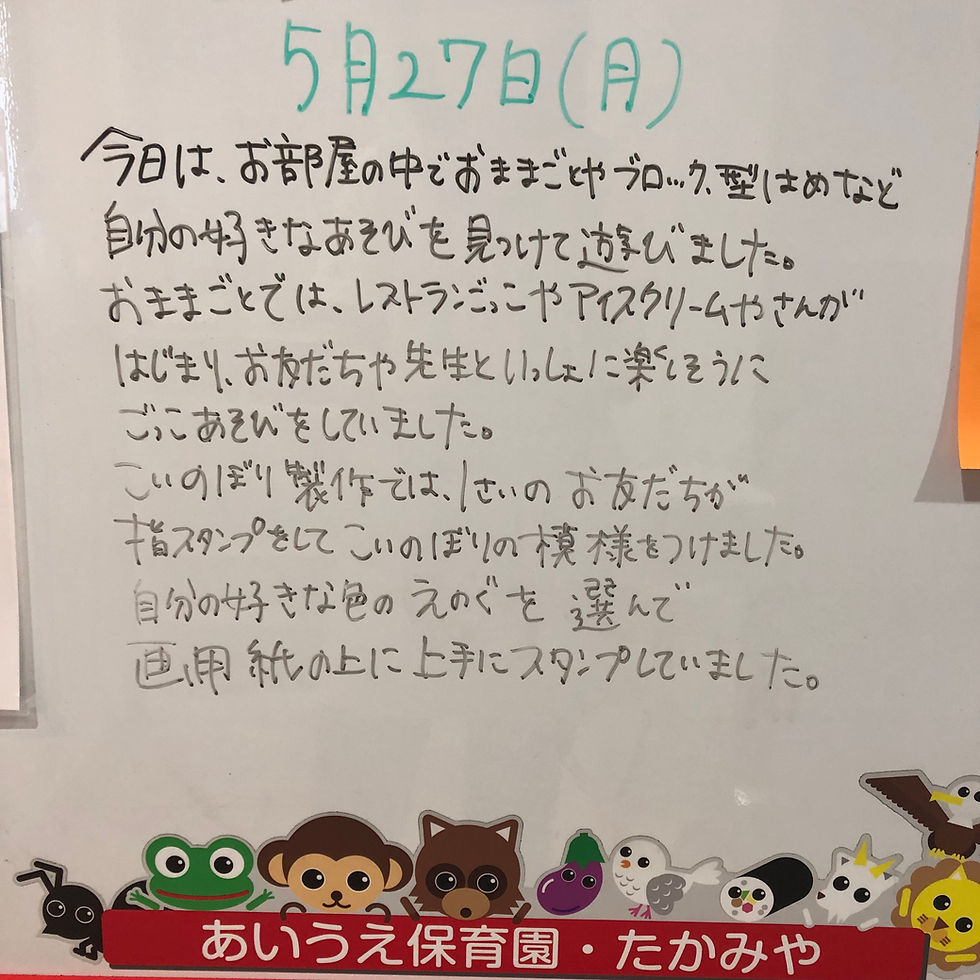 5月27日(月)
今日は、お部屋の中でおままごとやブロック、型はめなど
自分の好きなあそびを見つけて遊びました。
おままごとでは、レストランごっこやアイスクリームやさんが
はじまり、お友だちや先生といっしょに楽しそうに
ごっこあそびをしていました。
こいのぼり製作では、1さいのお友だちが
指スタンプをしてこいのぼりの模様をつけました。
自分の好きな色のえのぐを選んで
画用紙の上に上手にスタンプしていました。
あいうえ保育園・たかみや